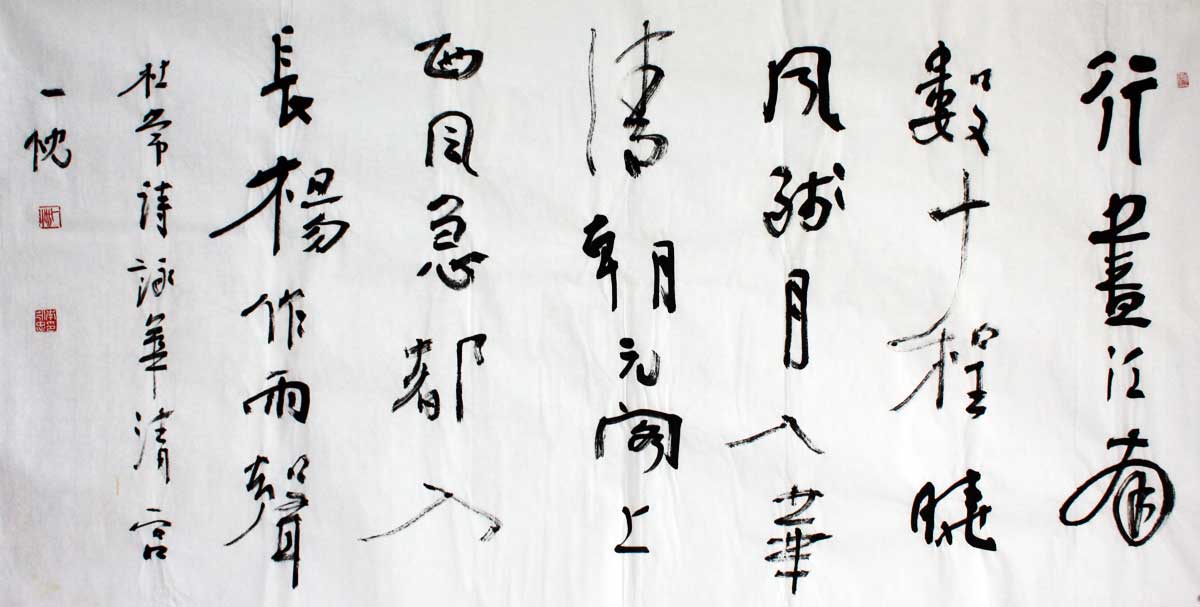 行盡江南
數十程曉
風殘月入華
清朝元閣上
西風急都入
長楊作雨聲
杜常詩詠華清宮
一忱